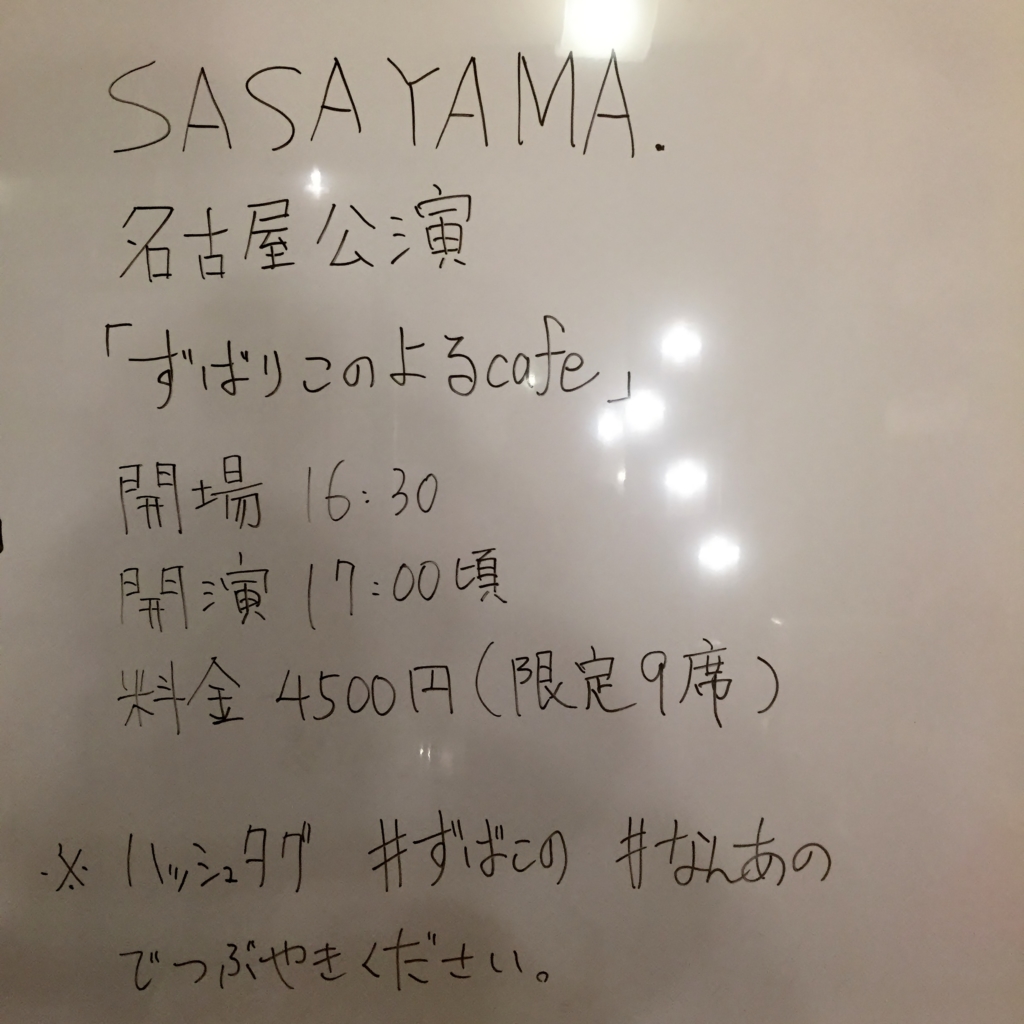 SASAYAMA.
名古屋公演
「ずばりこのよるcafe」
開場 16:30
開演 17:00頃
料金 4500円(限定9席)
※ ハッシュタグ #ずばこの #なんあの
でつぶやきください。